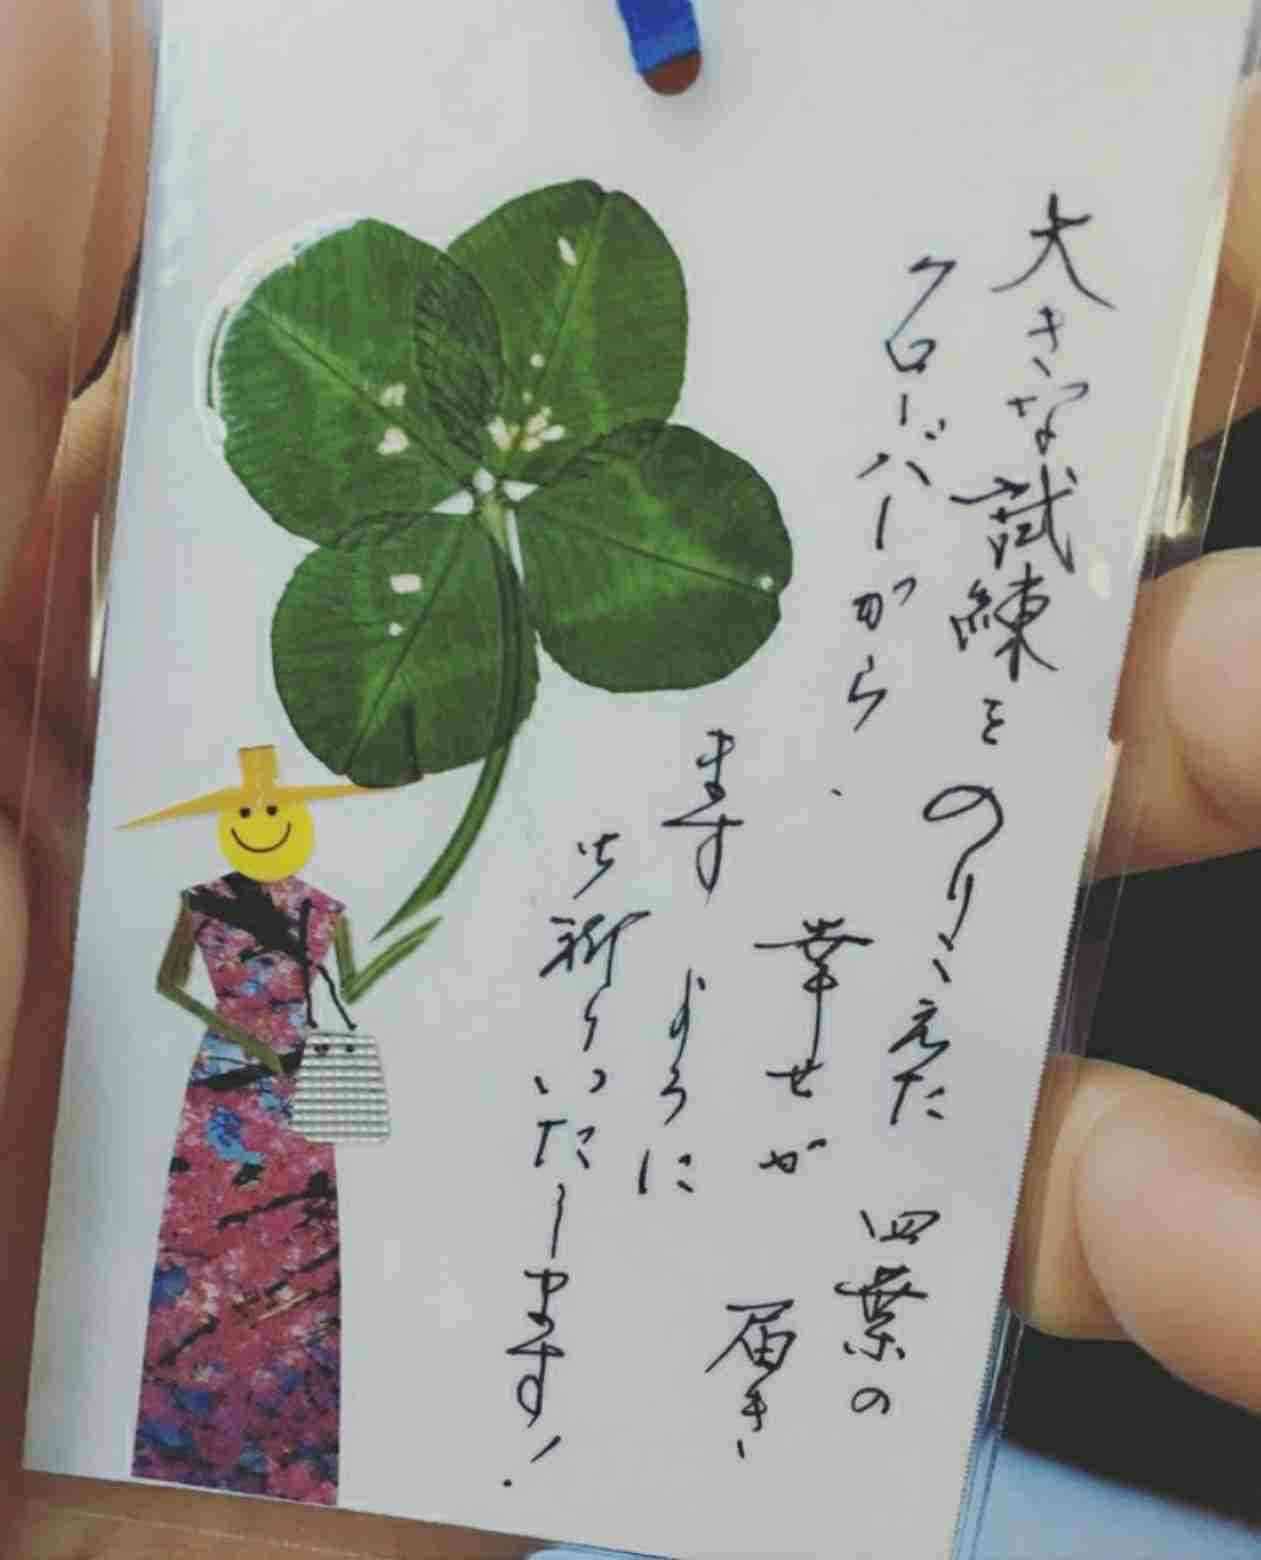 大きな試練をのりこえた四葉の
クローバーから幸せが届き
ますように
お祈りいたします!